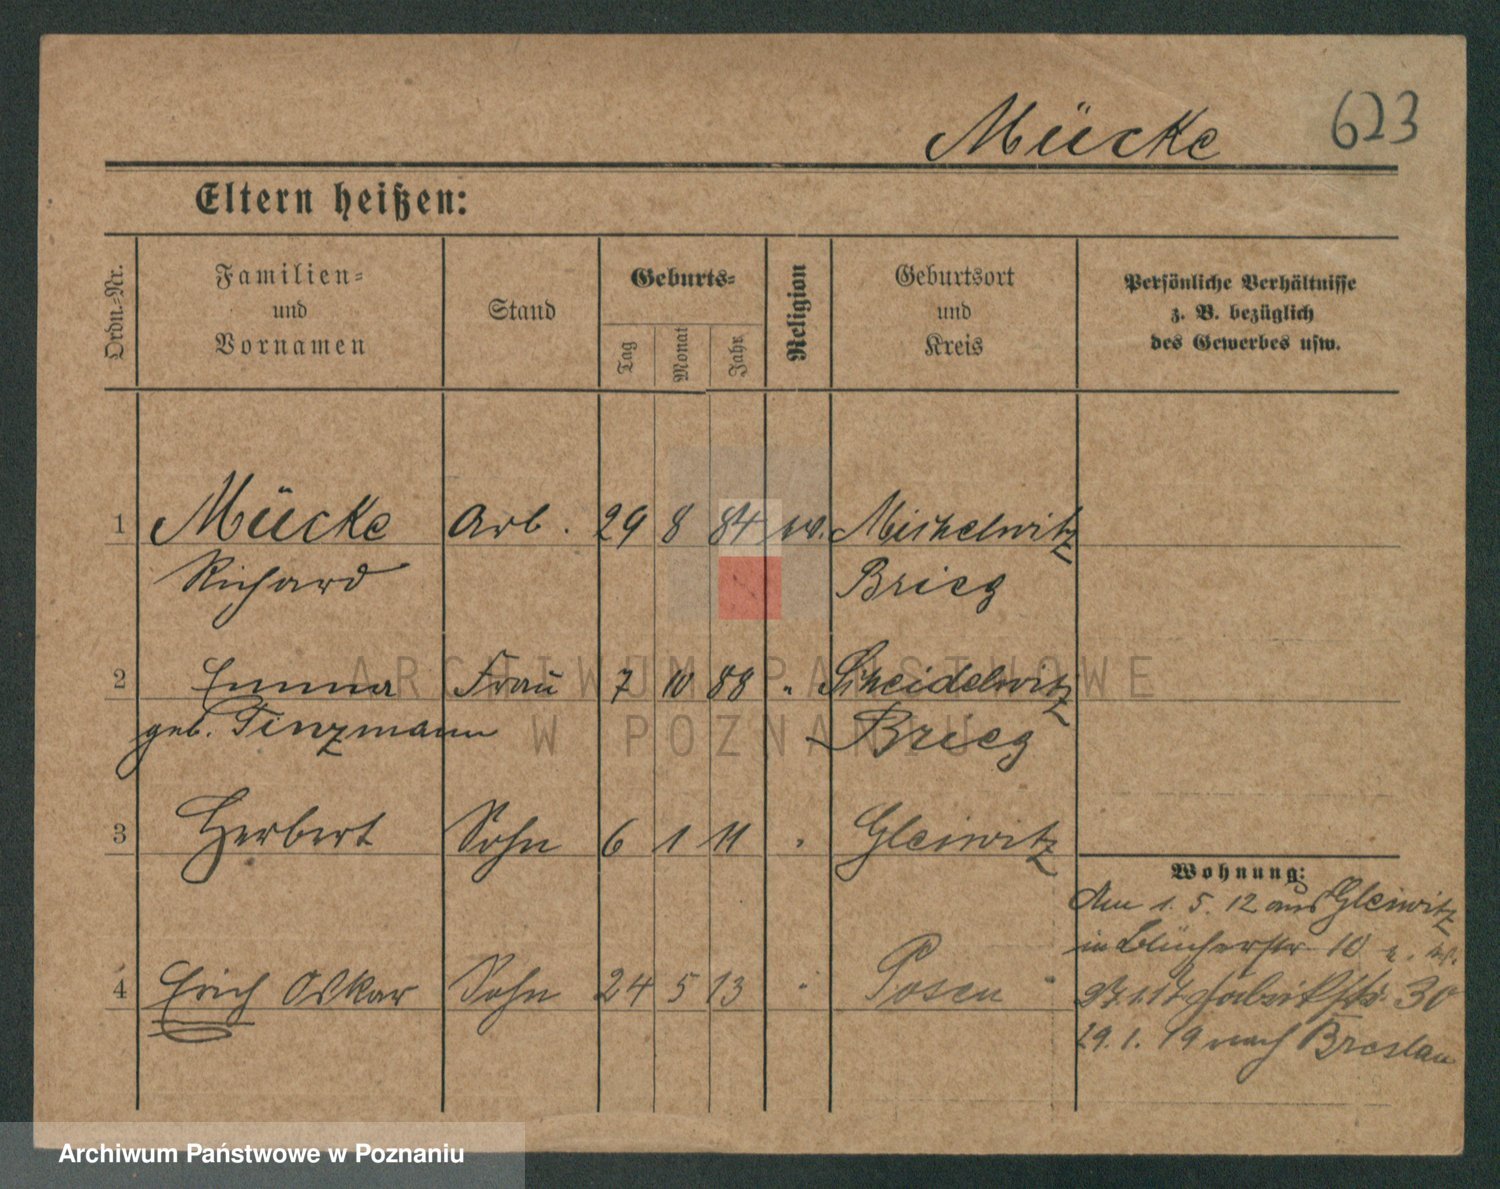 Mücke 623
Eltern heißen:
Ordn.-Nr.
Familien-
und
Vornamen
Stand
Geburts-
Tag
Monat
Jahr
Religion
Geburtsort
und
Kreis
Persönliche Verhältnisse
z. B. bezüglich
des Gewerbes usw.
1 Mücke Arb. 29 8 84 ev. Michelwitz
Richard Brieg
2 Emma Frau 7 10 88 " Scheidelwitz
geb. Tinzmann Brieg
3 Herbert Sohn 6 1 11 " Gleiwitz
4 Erich Oskar Sohn 24 5 13 " Posen
Wohnung:
Am 1. 5. 12 aus Gleiwitz
in Blücherstr 10
27.1.17 Fabrikstr. 30
29. 1. 19 nach Breslau
ARCHIWUM PAŃSTWOWE
W POZNANIU
Archiwum Państwowe w Poznaniu